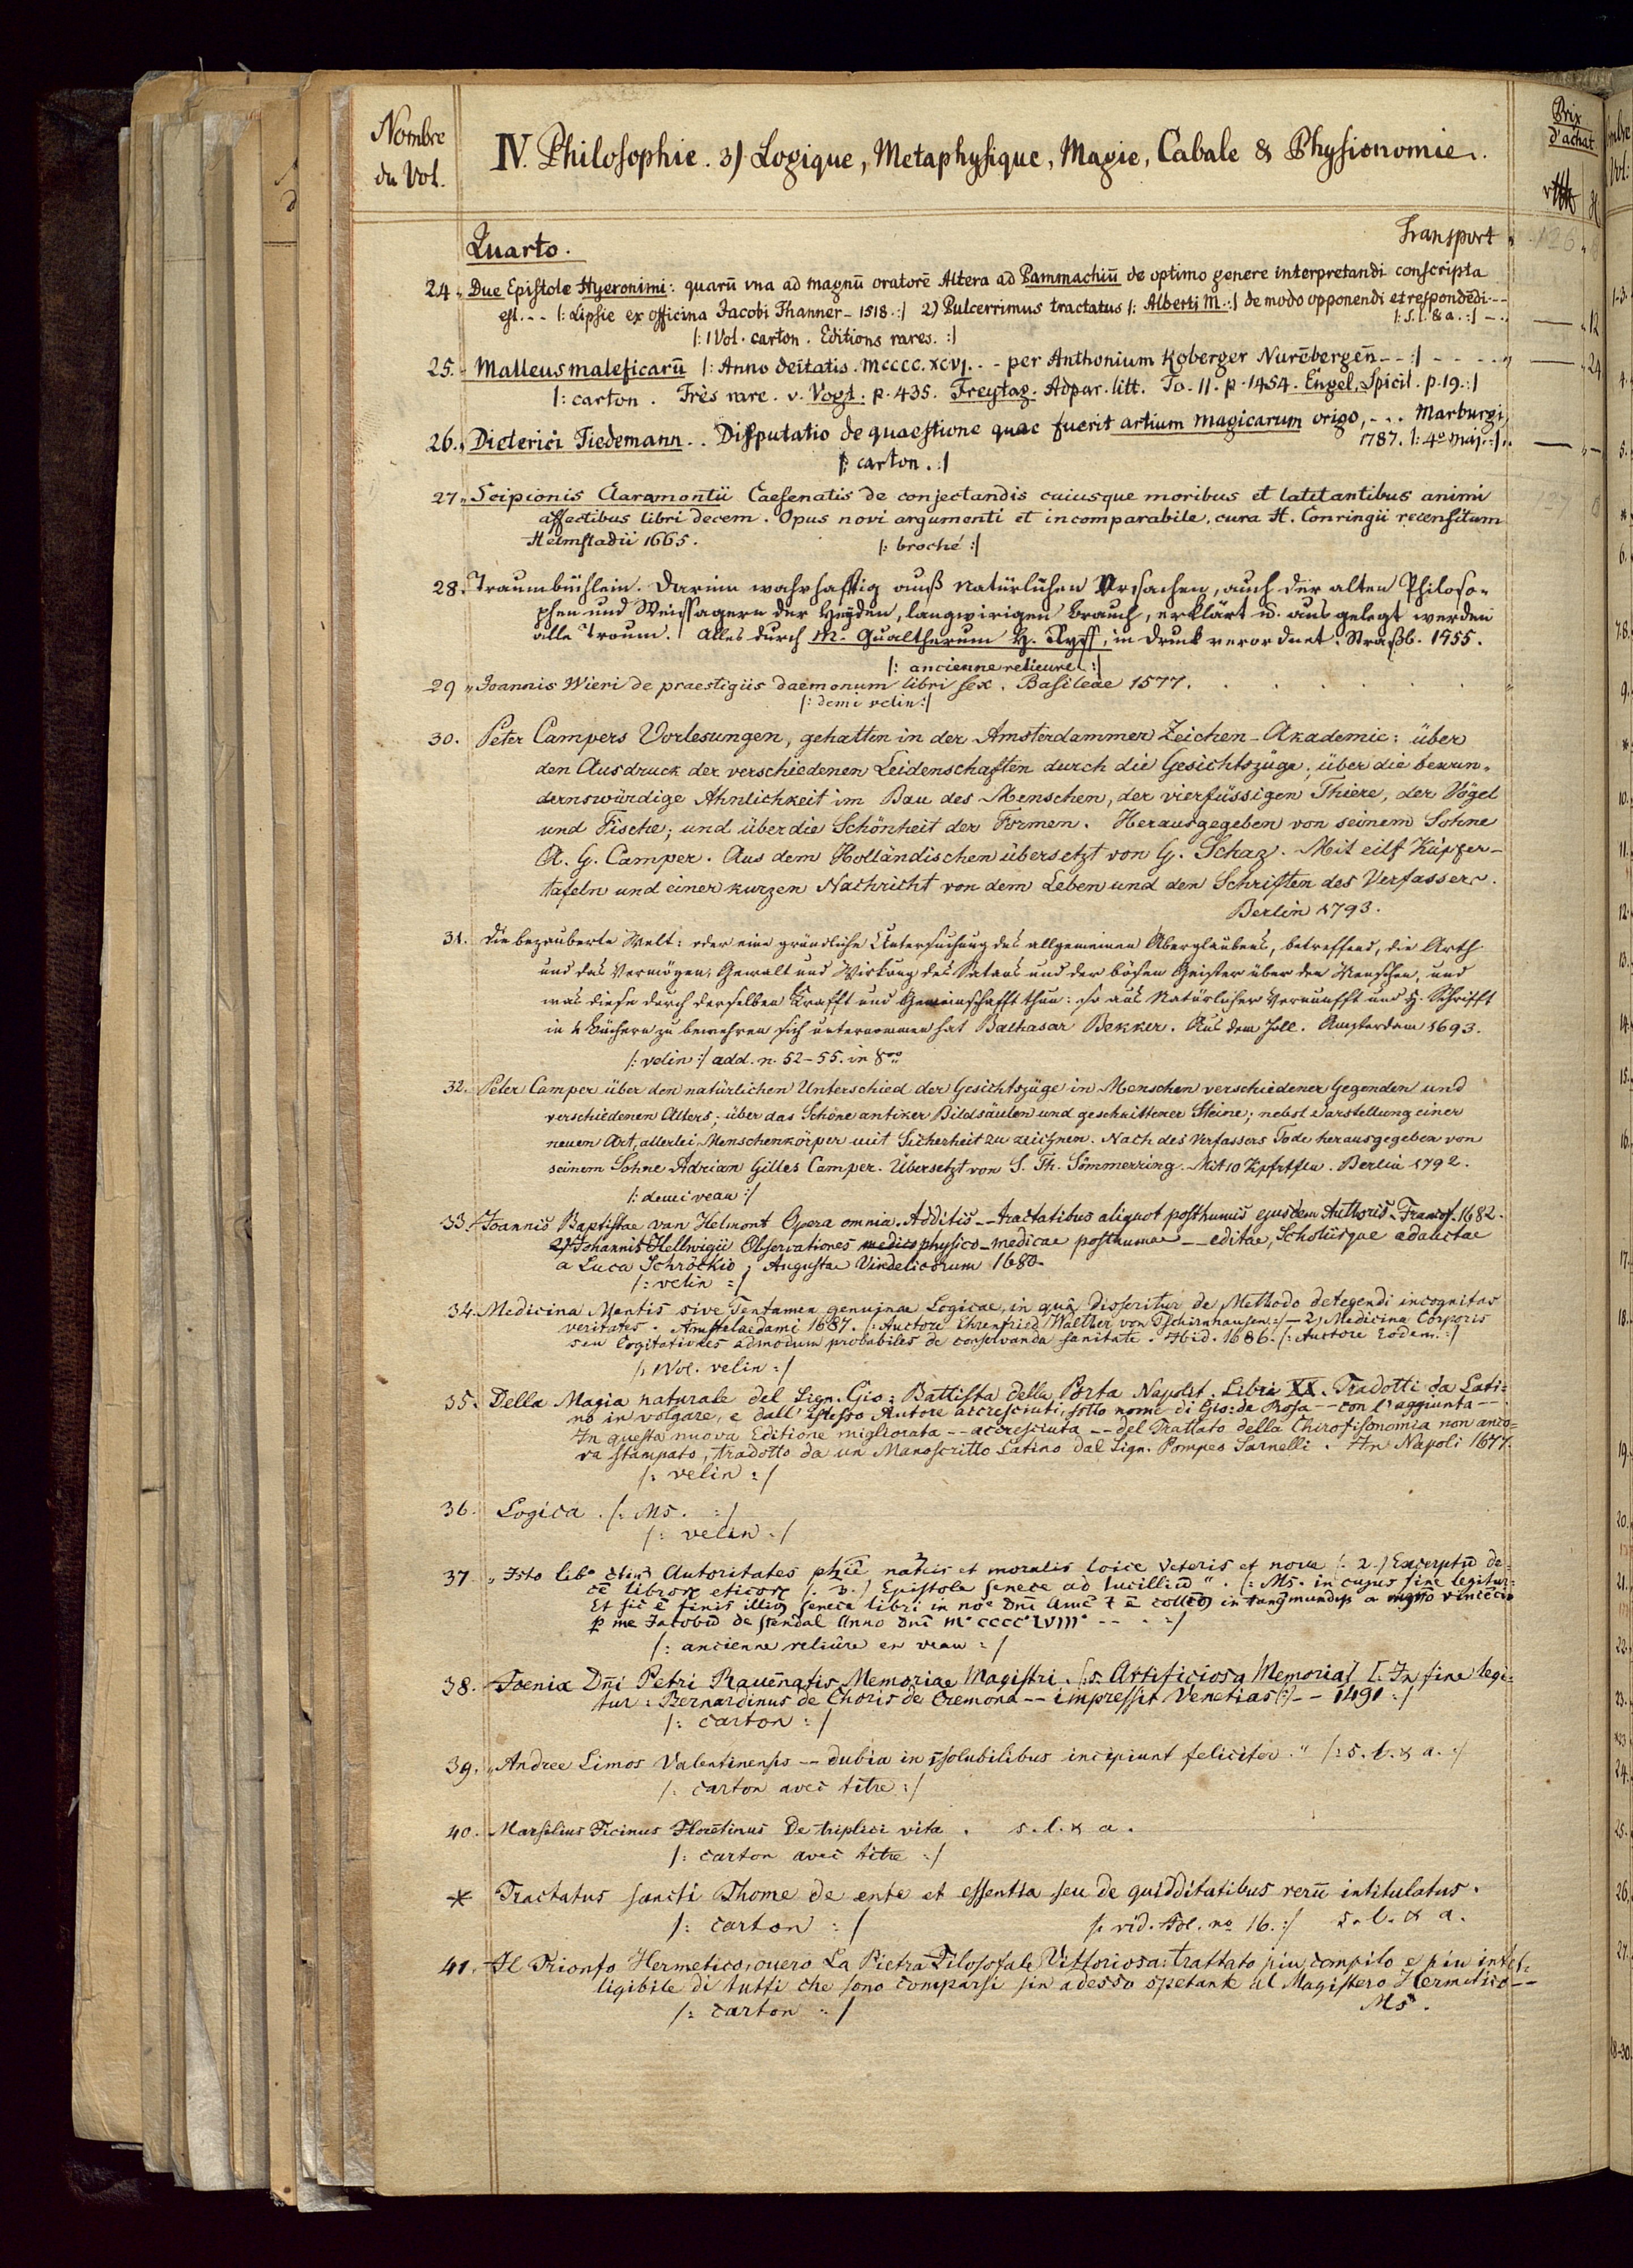 Nombre
du Vol.
IV. Philosophie. 3) Logique, Metaphysique, Magie, Cabale & Physionomie.
Prix
d'achat
Quarto.
Transport
24. Due Epistole Hyeronimi: quarū vna ad magnū oratorē Altera ad Pammachiū de optimo genere interpretandi conscripta
est. - - |: Lipsie ex officina Jacobi Thanner - 1518. :| 2) Pulcerrimus tractatus |: Alberti M. :| de modo opponendi et respondēdi. - -
|: s. l. & a. :| - - 12
|: 1 Vol. carton. Editions rares. :|
25. Malleus maleficarū |: Anno deitatis. mcccc. xcvj. . - per Anthonium Koberger Nurēbergeñ - - :| - - - - 24
|: carton. Très rare. v. Vogt. p. 435. Freytag. Adpar. litt. To. II. p. 1454. Engel. Spicil. p. 19. :|
26. Dieterici Tiedemann. . Disputatio de quaestione quae fuerit artium magicarum origo, - . . Marburgi,
1787. |: 4º maj. :|
|: carton. :|
27. Scipionis Claramontii Caesenatis de conjectandis cuiusque moribus et latitantibus animi
affectibus libri decem. Opus novi argumenti et incomparabile, cura H. Conringii recensitum
Helmstadii 1665.
|: broché :|
28. Traumbüchlein. Darinn wahrhafftig auß Natürlichen Vrsachen, auch der alten Philoso-
phen und Weissagern der Heyden, langwirigen brauch, erklärt u. aus gelegt werden
alle Traum. Alles durch M. Gualtherum H. Ryff, in Druck verordnet. Straßb. 1955.
|: ancienne relieure. :|
29. Joannis Wieri de praestigiis daemonum libri sex. Basileae 1577. . . . . .
|: demi velin :|
30. Peter Campers Vorlesungen, gehalten in der Amsterdammer Zeichen-Akademie: über
den Ausdruck der verschiedenen Leidenschaften durch die Gesichtszüge; über die bewun-
dernswürdige Ahnlichkeit im Bau des Menschen, der vierfüssigen Thiere, der Vögel
und Fische; und über die Schönheit der Formen. Herausgegeben von seinem Sohne
A. G. Camper. Aus dem Holländischen übersetzt von G. Schaz. Mit eilf Kupfer-
tafeln und einer kurzen Nachricht von dem Leben und den Schriften des Verfassers.
Berlin 1793.
31. Die bezauberte Welt: oder eine gründliche Untersuchung des allgemeinen Aberglaubens, betreffend, die Arth
und das Vermögen, Gewalt und Wirkung des Satans und der bösen Geister über den Menschen, und
was diese durch derselben Krafft und Gemeinschafft thun: so aus Natürlicher Vernunfft und H. Schrifft
in 4 Büchern zu bewehren sich unternommen hat Balthasar Bekker. Aus dem Holl. Amsterdam 1693.
|: velin :| add. n. 52-55. in 8vo
32. Peter Camper über den natürlichen Unterschied der Gesichtszüge in Menschen verschiedener Gegenden und
verschiedenen Alters; über das Schöne antiker Bildsäulen und geschnittener Steine; nebst Darstellung einer
neuen Art, allerlei Menschenköpfe mit Sicherheit zu zeichnen. Nach des Verfassers Tode herausgegeben von
seinem Sohne Adrian Gilles Camper. Übersetzt von S. Th. Sömmerring. Mit 10 Kpfrtfln. Berlin 1792.
|: demi veau :|
33. Joannis Baptistae van Helmont Opera omnia. Additis - - tractatibus aliquot posthumis ejusdem Authoris. Francof. 1682.
2) Johannis Hellwigii Observationes physico-medicae posthumae - - editae, Scholiisque adauctae
a Luca Schröckio; Augustae Vindelicorum 1680.
|: velin :|
34. Medicina Mentis sive Tentamen genuinae Logicae, in quâ disseritur de Methodo detegendi incognitas
veritates. Amstelaedami 1687. |: Auctore Ehrenfried Walther von Tschirnhausen :| - 2) Medicina Corporis
seu Cogitationes admodum probabiles de conservanda sanitate. Ibid. 1686. |: Auctore Eodem. :|
|: 1 Vol. velin :|
35. Della Magia naturale del Sign. Gio: Battista della Porta Napolit. Libri XX. Tradotti da Lati=
no in volgare, e dall' istesso Autore accresciuti, sotto nome di Gio: de Rosa - - con l'aggiunta - -
In questa nuova Editione migliorata - - accresciuta - - del Trattato della Chirofisonomia non anco=
ra stampato, tradotto da un Manoscritto Latino dal Sign. Pompeo Sarnelli. In Napoli 1677.
|: velin :|
36. Logica. |: Ms. :|
|: velin :|
37. Autoritates et moralis loice Veteris et nove |: 2.) Excerptū de
Epistole senece ad lucilliū". |: Ms. in cujus fine legitur:
Et sic ē finis senece libri in
p me Jacobū de stendal Anno Dnī mº ccccº lviijº - - - :|
|: ancienne reliûre en veau :|
38. Foenix Dñi Petri Raueñatis Memoriae Magistri. |: s. Artificiosa Memoria :| |: In fine legi=
tur: Bernardinus de Choris de Cremona - - impressit Venetias (?) - - 1491 :|
|: carton :|
39. „Andree Limos Valentinensis - - dubia in īsolubilibus incipiunt feliciter." |: s. l. & a. :|
|: carton avec titre :|
40. Marsilius Ficinus Florētinus De triplici vita. s. l. & a.
|: carton avec titre :|
* Tractatus sancti Thome de ente et essentia seu de quidditatibus rerū intitulatus.
|: carton :| |: vid. Fol. no 16. :| s. l. & a.
41. Il Trionfo Hermetico, ouero La Pietra Filosofale Vittoriosa: trattato piu compito e piu intel=
ligibile di tutti che sono comparsi fin adesso spetante al Magistero Hermetico - -
|: carton :| Ms.